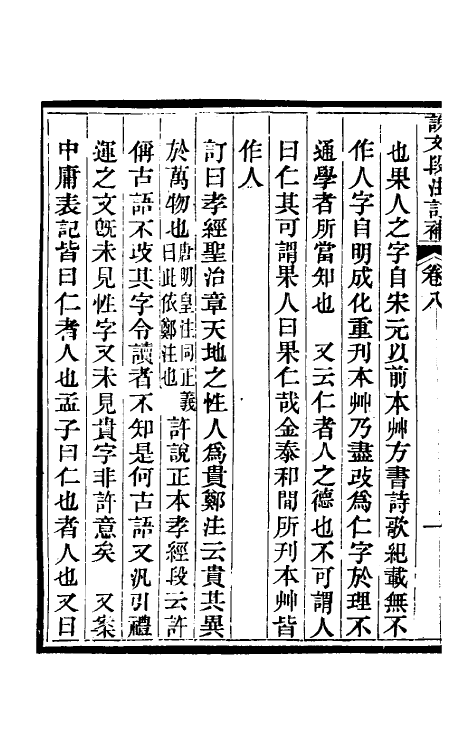 說文段注訂補 卷八 一
也果人之字自宋元以前本艸方書詩歌紀載無不
作人字自明成化重刊本艸乃盡改爲仁字於理不
通學者所當知也　又云仁者人之德也不可謂人
曰仁其可謂果人曰果仁哉金泰和間所刊本艸皆
作人
訂曰孝經聖治章天地之性人爲貴鄭注云貴其異
於萬物也唐明皇注同正義曰此依鄭注也許說正本孝經段云許
偁古語不改其字令讀者不知是何古語又汎引禮
運之文旣未見性字又未見貴字非許意矣　又案
中庸表記皆曰仁者人也孟子曰仁也者人也又曰